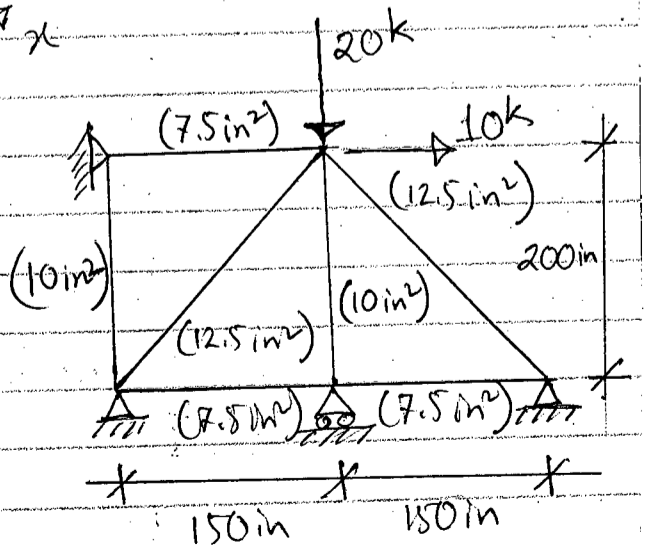 x
20k
(7.5in²)
10k
(12.5in²)
200in
(10in²)
(10in²)
(12.5in²)
(7.5in²)
(7.5in²)
150in
150in